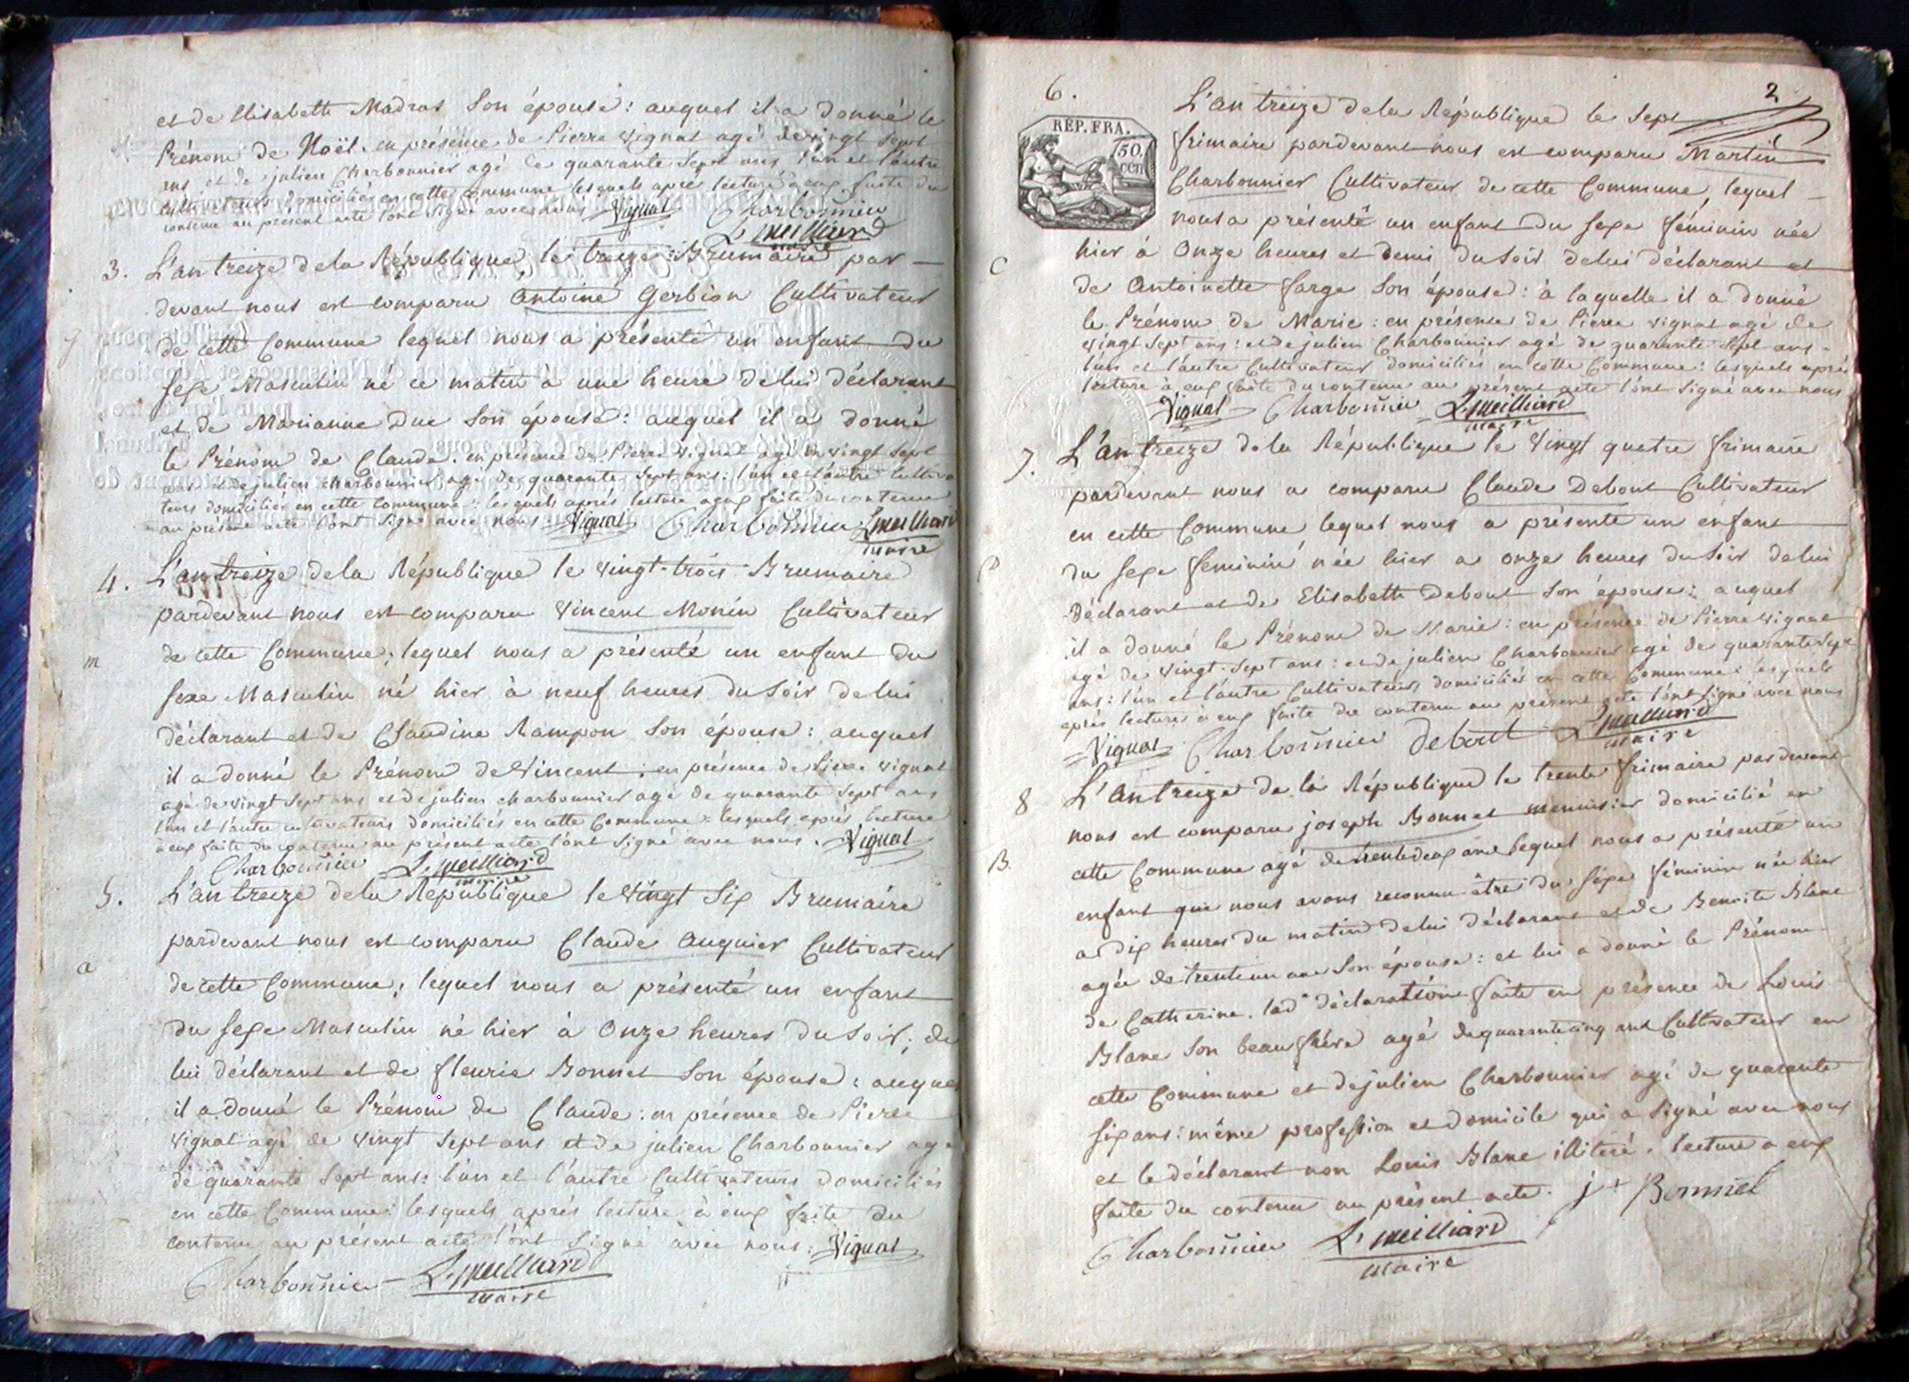 et de Elisabeth Madras Son épouse: auquel il a donné le
Prénom de Noël. en présence de Pierre Vignat agé de vingt Sept
ans et de julien Charbonnier agé de quarante Sept ans l'un et l'autre
cultivateurs domiciliés en cette Commune lesquels après lecture à eux faite du
contenu au présent acte l'ont Signé avec nous Vignat Charbonnier
L. meilliard
maire
3. L'an treize de la République, le treize Brumaire par
devant nous est comparu Antoine Gerbion Cultivateur
g
de cette Commune lequel nous a présenté un enfant du
Sexe Masculin né ce matin à une heure de lui déclarant
et de Marianne Duc Son épouse: auquel il a donné
le Prénom de Claude. en présence de Pierre Vignat agé de vingt Sept
ans et de julien charbonnier agé de quarante Sept ans: l'un et l'autre Cultiva
teurs domiciliés en cette Commune: lesquels après lecture à eux faite du contenu
au présent acte l'ont Signé avec nous Vignat Charbonnier L. meilliard
maire
4. L'an treize de la République le vingt-trois Brumaire
pardevant nous est comparu Vincent Monin Cultivateur
m
de cette Commune, lequel nous a présenté un enfant du
Sexe Masculin né hier à neuf heures du Soir de lui
déclarant et de Claudine Rampon Son épouse: auquel
il a donné le Prénom de Vincent: en présence de Pierre Vignat
agé de vingt Sept ans et de julien charbonnier agé de quarante Sept ans
l'un et l'autre cultivateurs domiciliés en cette Commune: lesquels après lecture
à eux faite du contenu au présent acte l'ont Signé avec nous. Vignat
Charbonnier L. meilliard
maire
5. L'an treize de la République le Vingt Six Brumaire
pardevant nous est comparu Claude Auguier Cultivateur
a
de cette Commune, lequel nous a présenté un enfant
du Sexe Masculin né hier à Onze heures du Soir, de
lui déclarant et de fleurie Bonnet Son épouse: auquel
il a donné le Prénom de Claude: en présence de Pierre
Vignat agé de vingt Sept ans et de julien Charbonnier agé
de quarante Sept ans: l'un et l'autre Cultivateurs domiciliés
en cette Commune: lesquels après lecture à eux faite du
contenu au présent acte l'ont Signé avec nous: Vignat
Charbonnier L. meilliard
maire
2
6. L'an treize de la République le Sept
RÉP. FRA.
50.
cen
frimaire pardevant nous est comparu Martin
Charbonnier Cultivateur de cette Commune, lequel
nous a présenté un enfant du Sexe féminin née
C
hier à Onze heures et demi du Soir de lui déclarant et
de Antoinette farge Son épouse: à laquelle il a donné
le Prénom de Marie: en présence de Pierre Vignat agé de
vingt Sept ans: et de julien Charbonnier agé de quarante Sept ans
l'un et l'autre Cultivateurs domiciliés en cette Commune: lesquels après
lecture à eux faite du contenu au présent acte l'ont Signé avec nous
Vignat Charbonnier L. meilliard
maire
7. L'an treize de la République le Vingt quatre frimaire
pardevant nous a comparu Claude Debout Cultivateur
en cette Commune, lequel nous a présenté un enfant
D
du Sexe feminin née hier a onze heures du Soir de lui
Déclarant et de Elisabeth Debout Son épouse: auquel
il a donné le Prénom de Marie: en présence de Pierre Vignat
agé de Vingt-Sept ans: et de julien Charbonnier agé de quarante Sept
ans: l'un et l'autre Cultivateurs domiciliés en cette Commune: lesquels
après lecture à eux faite du contenu au présent acte l'ont Signé avec nous
Vignat Charbonnier debout L. meilliard
maire
8 L'An treize de la République le trente frimaire pardevant
nous est comparu joseph Bonnet menuisier domicilié en
B.
cette Commune agé de trente deux ans lequel nous a présenté un
enfant que nous avons reconnu être du Sexe féminin née hier
a dix heures du matin de lui déclarant et de Benoite Blanc
agée de trente un ans Son épouse: et lui a donné le Prénom
de Catherine. lad.e déclaration faite en présence de Louis
Blanc Son beaufrère agé de quarante cinq ans Cultivateur en
cette Commune et de julien Charbonnier agé de quarante
Six ans: même profession et domicile qui a Signé avec nous
et le déclarant non Louis Blanc illitéré. lecture a eux
faite du contenu au présent acte. j.h Bonniel
Charbonnier L. meilliard
maire